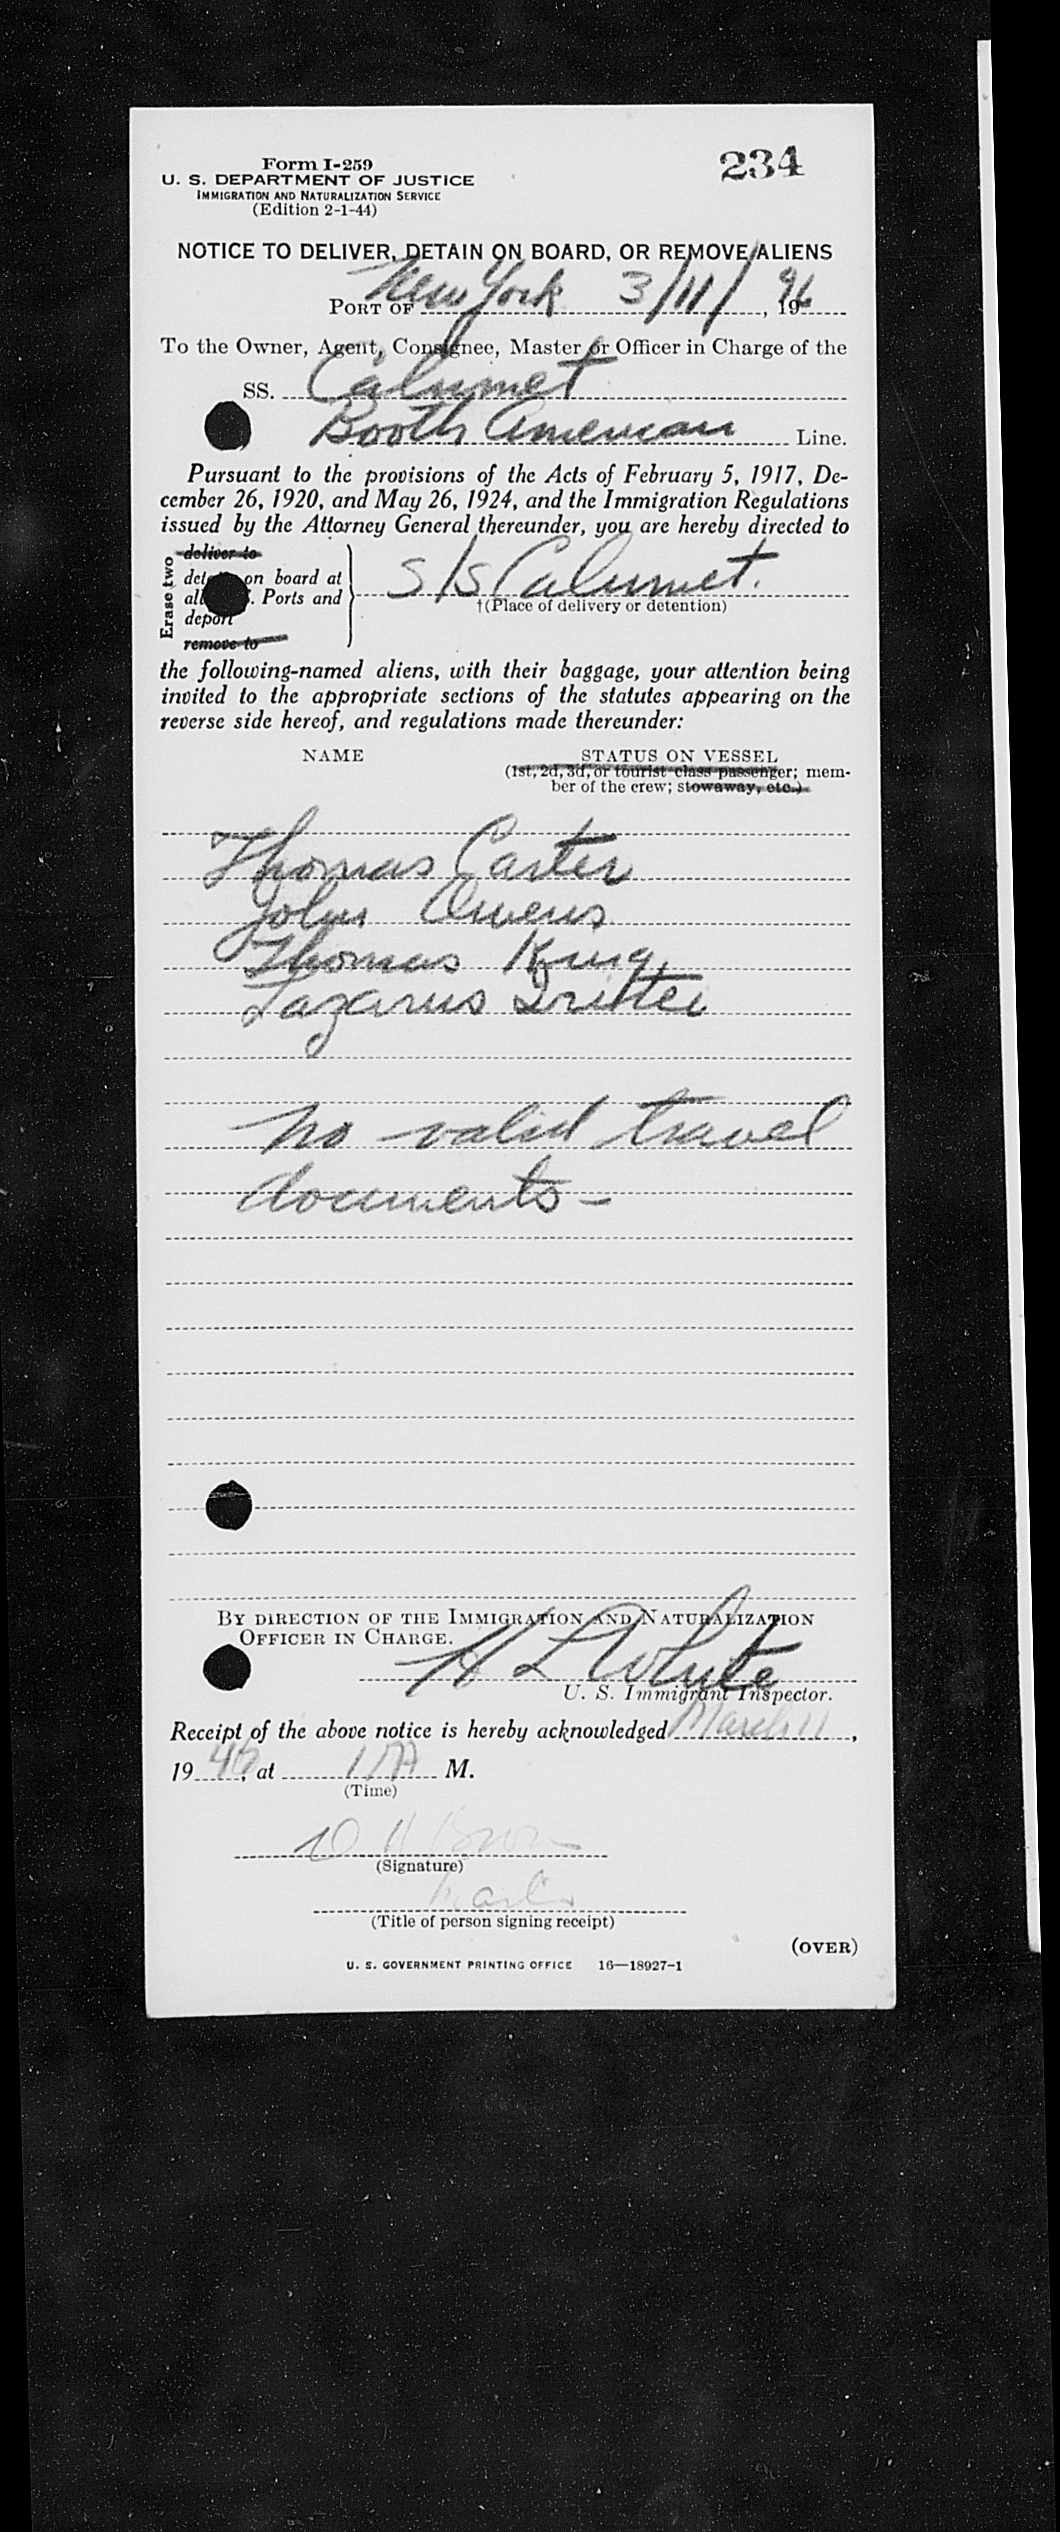 Form I-259
234
U. S. DEPARTMENT OF JUSTICE
IMMIGRATION AND NATURALIZATION SERVICE
(Edition 2-1-44)
NOTICE TO DELIVER, DETAIN ON BOARD, OR REMOVE ALIENS
PORT OF New York 3/11/, 1946
To the Owner, Agent, Consignee, Master or Officer in Charge of the
SS. Calumet
Booth American Line.
Pursuant to the provisions of the Acts of February 5, 1917, De-
cember 26, 1920, and May 26, 1924, and the Immigration Regulations
issued by the Attorney General thereunder, you are hereby directed to
Erase two
deliver to
on board at
Ports and
deport
remove to
S/S Calumet.
†(Place of delivery or detention)
the following-named aliens, with their baggage, your attention being
invited to the appropriate sections of the statutes appearing on the
reverse side hereof, and regulations made thereunder:
NAME STATUS ON VESSEL
(1st, 2d, 3d, or tourist class passenger; mem-
ber of the crew; stowaway, etc.)
Thomas Carter
John Owens
Thomas King
Lazarus
No valid travel
documents-
BY DIRECTION OF THE IMMIGRATION AND NATURALIZATION
OFFICER IN CHARGE.
H L White
U. S. Immigrant Inspector.
Receipt of the above notice is hereby acknowledged March 11,
1946, at M.
(Time)
(Signature)
(Title of person signing receipt)
(OVER)
U. S. GOVERNMENT PRINTING OFFICE 16—18927-1